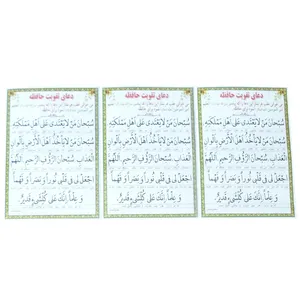 دعای تقویت حافظه
سُبْحانَ مَنْ لایَعْتَدی عَلی اَهْلِ مَمْلَکَتِهِ
سُبْحانَ مَنْ لایَأْخُذُ اَهْلَ الْأَرْضِ بِأَلْوانِ
الْعَذابِ سُبْحانَ الرَّؤُفِ الرَّحیمِ اَللّهُمَّ
اجْعَلْ لی فی قَلْبی نُوراً وَ بَصَراً وَ فَهْماً
وَ عِلْماً اِنَّکَ عَلی کُلِّشَیْءٍ قَدیرٌ.
دعای تقویت حافظه
سُبْحانَ مَنْ لایَعْتَدی عَلی اَهْلِ مَمْلَکَتِهِ
سُبْحانَ مَنْ لایَأْخُذُ اَهْلَ الْأَرْضِ بِأَلْوانِ
الْعَذابِ سُبْحانَ الرَّؤُفِ الرَّحیمِ اَللّهُمَّ
اجْعَلْ لی فی قَلْبی نُوراً وَ بَصَراً وَ فَهْماً
وَ عِلْماً اِنَّکَ عَلی کُلِّشَیْءٍ قَدیرٌ.
دعای تقویت حافظه
سُبْحانَ مَنْ لایَعْتَدی عَلی اَهْلِ مَمْلَکَتِهِ
سُبْحانَ مَنْ لایَأْخُذُ اَهْلَ الْأَرْضِ بِأَلْوانِ
الْعَذابِ سُبْحانَ الرَّؤُفِ الرَّحیمِ اَللّهُمَّ
اجْعَلْ لی فی قَلْبی نُوراً وَ بَصَراً وَ فَهْماً
وَ عِلْماً اِنَّکَ عَلی کُلِّشَیْءٍ قَدیرٌ.